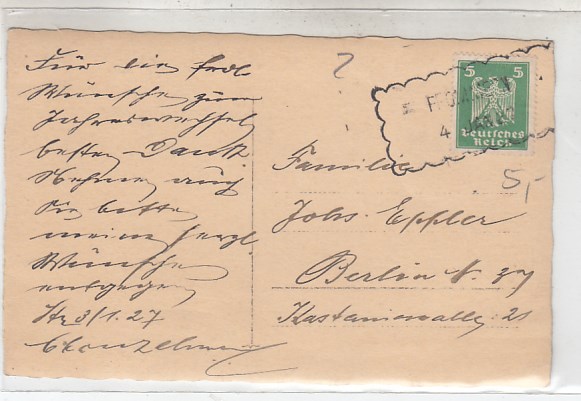 Für die frdl.
Wünsche zum
Jahreswechsel
besten Dank
Nehmen auch
Sie bitte
meine herzl.
Wünsche
entgegen
3/1.27
?
5 5
Deutsches
Reich
4
5,-
Familie
Johs. Eppler
Berlin N.
Kastanienallee 21